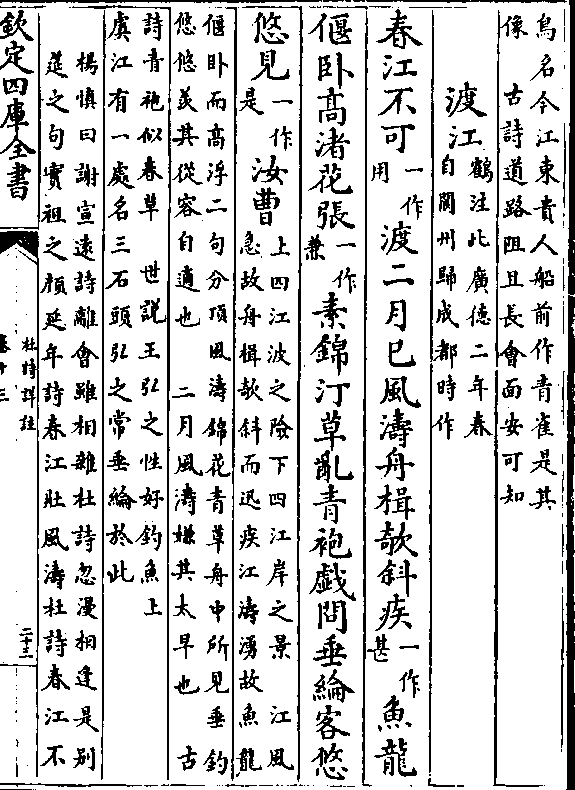 鳥名今江東貴人船前作青雀是其
像 古詩道路阻且長會面安可知
渡江 鶴注此廣徳二年春
自閬州歸成都時作
春江不可一作用渡二月已風濤舟楫欹斜疾一作甚魚龍
偃卧髙渚花張一作兼素錦汀草亂青袍戯問垂綸客悠
悠見一作是汝曹 上四江波之險下四江岸之景 江風
急故舟楫欹斜而迅疾江濤湧故魚龍
偃卧而髙浮二句分頂風濤錦花青草舟中所見垂釣
悠悠羡其從容自適也 二月風濤嫌其太早也 古
詩青袍似春草 世説王弘之性好釣魚上
虞江有一處名三石頭弘之常垂綸於此
楊慎曰謝宣遠詩離會雖相雜杜詩忽漫相逢是别
筵之句實祖之顔延年詩春江壯風濤杜詩春江不
欽定四庫全書
杜詩詳註
卷十三
二十三